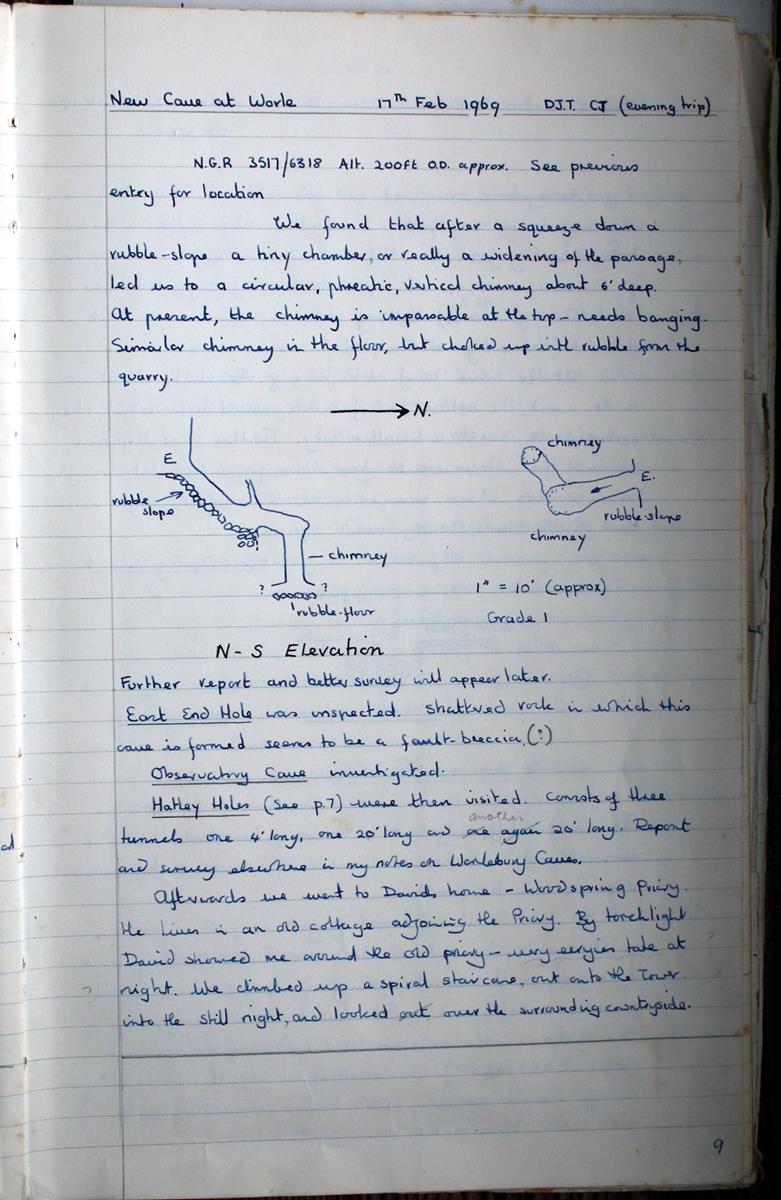 New Cave at Worle 17th Feb 1969 DJ.T. CJ (evening trip)
N.G.R 3517/6318 Alt. 200ft O.D. approx. See previous
entry for location
We found that after a squeeze down a
rubble-slope a tiny chamber, or really a widening of the passage,
led us to a circular, phreatic, vertical chimney about 6' deep.
At present, the chimney is impassable at the top - needs banging.
Similar chimney in the floor, but choked up with rubble from the
quarry.
→ N.
E
rubble
slope
chimney
? ?
rubble-floor
chimney
E.
rubble-slope
chimney
1" = 10' (approx)
Grade 1
N - S Elevation
Further report and better survey will appear later.
East End Hole was inspected. Shattered rock in which this
cave is formed seems to be a fault-breccia (?)
Observatory Cave investigated.
Hatley Holes (see p.7) were then visited. Consists of three
another
tunnels one 4' long, one 20' long and one again 20' long. Report
and survey elsewhere in my notes on Worlebury Caves.
Afterwards we went to Davids home - Woodspring Priory.
He lives in an old cottage adjoining the Priory. By torchlight
David showed me around the old priory - very at
night. We climbed up a spiral staircase, out onto the Tower
into the still night, and looked out over the surrounding countryside.
9